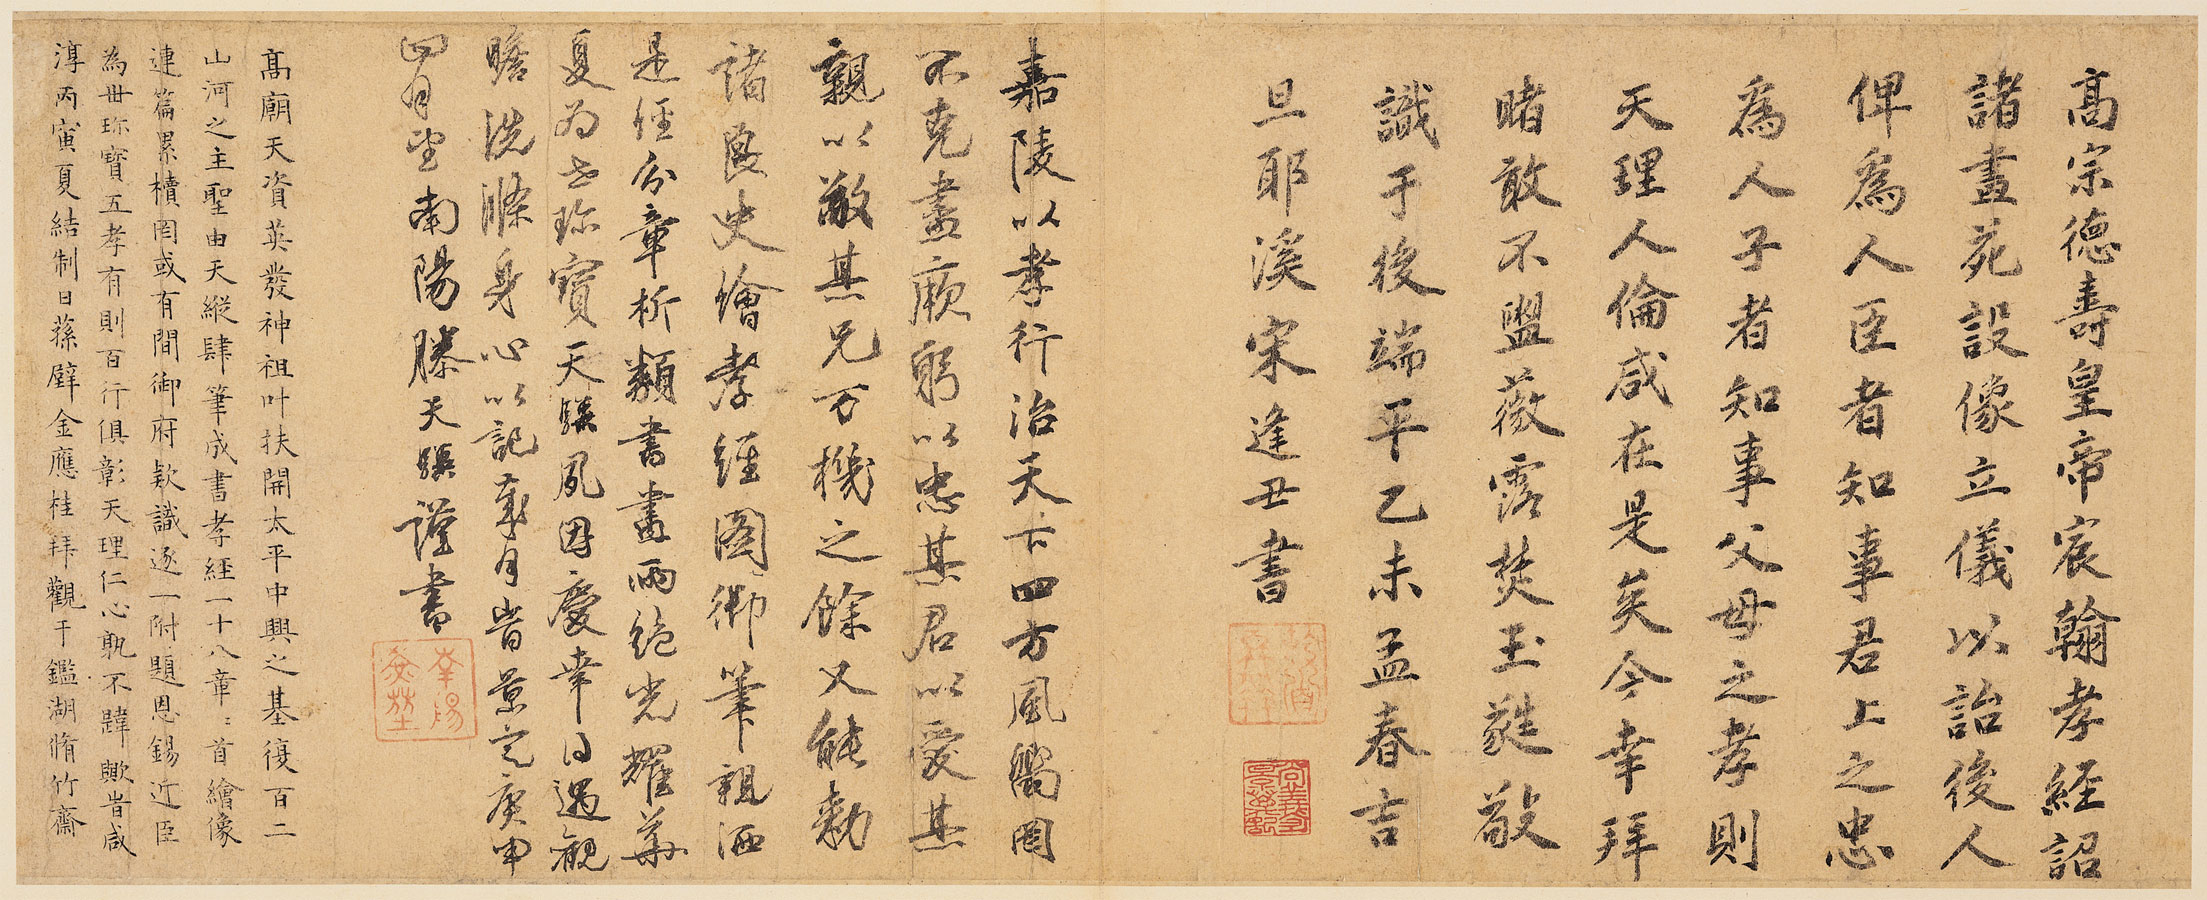 高宗德壽皇帝宸翰孝經詔
諸畫苑設像立儀以詒後人
俾為人臣者知事君上之忠
為人子者知事父母之孝則
天理人倫咸在是矣今幸拜
睹敢不盥薇露焚玉蕤敬
識于後端平乙未孟春吉
旦耶溪宋逢丑書
嘉陵以孝行治天下四方風嚮罔
不克盡厥躬以忠其君以愛其
親以敬其兄万機之餘又能敕
諸良史繪孝經圖御筆親洒
是經分章析類書畫兩絕光耀華
夏為世珍寶天驥夙因慶幸得遇觀
瞻洗滌身心以記歲月時景定庚申
四月望南陽滕天驥謹書
高廟天資英發神祖叶扶開太平中興之基復百二
山河之主聖由天縱肆筆成書孝經一十八章章首繪像
連篇累櫝罔或有間御府欵識逐一附題恩錫近臣
為世珍寶五孝有則百行俱彰天理仁心孰不韙歟時咸
淳丙寅夏結制日蓀壁金應桂拜觀于鑑湖脩竹齋